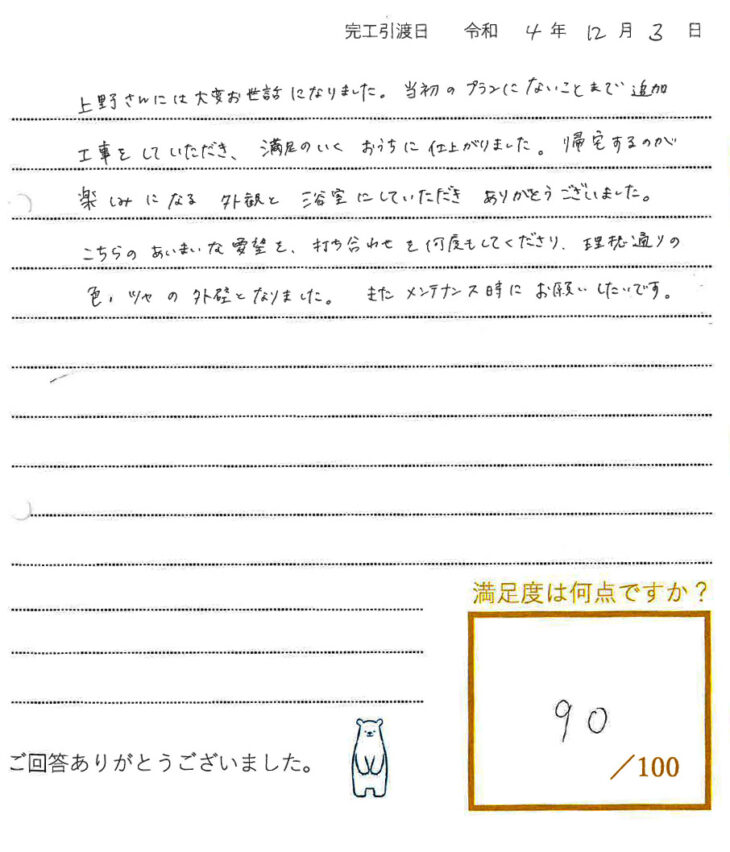 完工引渡日 令和 4 年 12 月 3 日
上野さんには大変お世話になりました。当初のプランにないことまで追加
工事をしていただき、満足のいくおうちに仕上がりました。帰宅するのが
楽しみになる外観と浴室にしていただきありがとうございました。
こちらのあいまいな要望を、打ち合わせを何度もしてくださり、理想通りの
色、ツヤの外壁となりました。またメンテナンス時にお願いしたいです。
満足度は何点ですか？
90
／100
ご回答ありがとうございました。